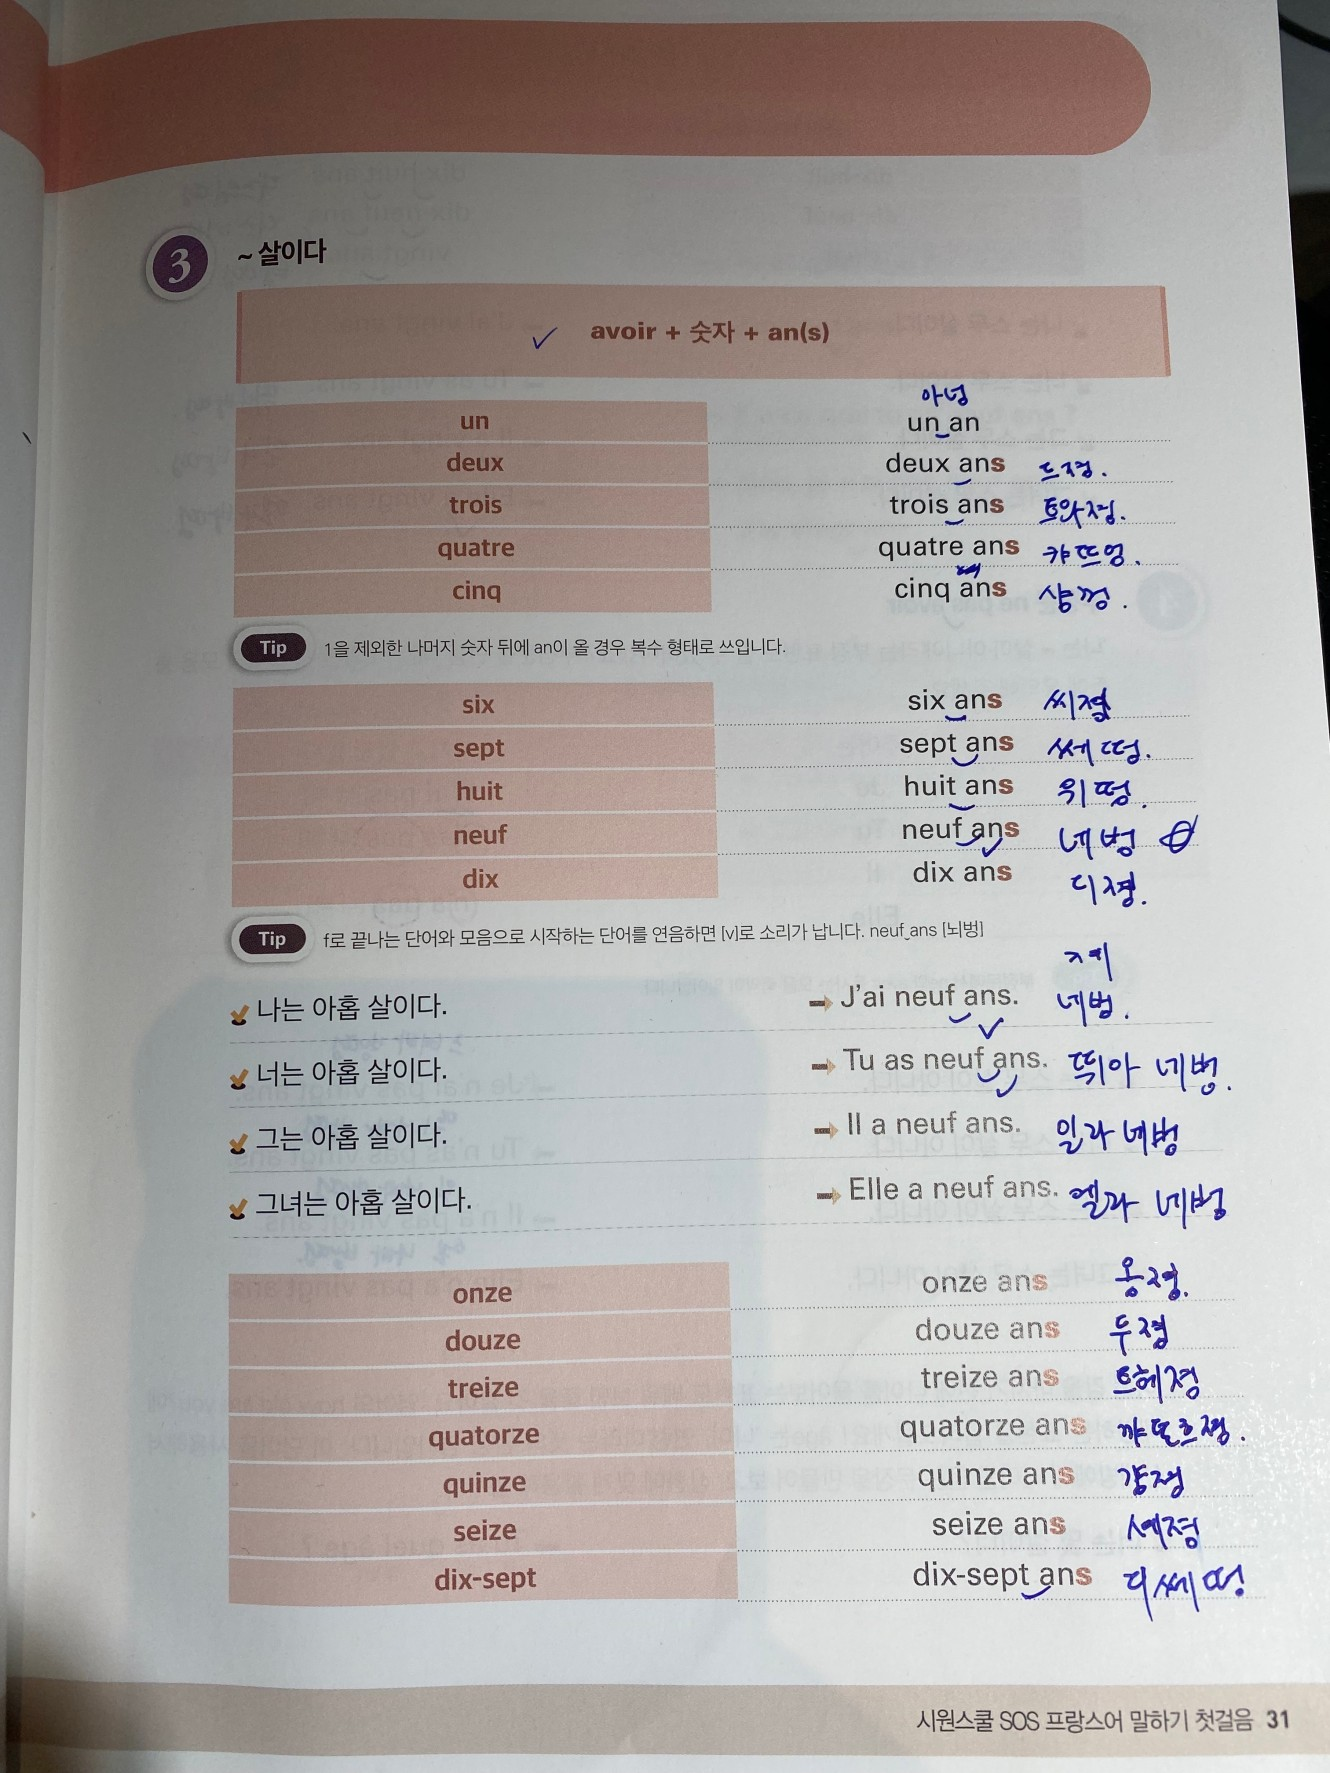 3 ~ 살이다
✓ avoir + 숫자 + an(s)
아넝
un un an
deux deux ans 드정.
trois trois ans 트와정.
quatre quatre ans 캬뜨엉.
cinq cinq ans 샹껑.
Tip 1을 제외한 나머지 숫자 뒤에 an이 올 경우 복수 형태로 쓰입니다.
six six ans 씨정
sept sept ans 쎄떵.
huit huit ans 위떵.
neuf neuf ans 네벙
dix dix ans 디정.
Tip f로 끝나는 단어와 모음으로 시작하는 단어를 연음하면 [v]로 소리가 납니다. neuf ans [뇌벙]
제
나는 아홉 살이다. ➡ J'ai neuf ans. 네벙.
너는 아홉 살이다. ➡ Tu as neuf ans. 뛰아 네벙.
그는 아홉 살이다. ➡ Il a neuf ans. 일라 네벙
그녀는 아홉 살이다. ➡ Elle a neuf ans. 엘라 네벙
onze onze ans 옹정.
douze douze ans 두정
treize treize ans 트헤정
quatorze quatorze ans 꺄또흐정.
quinze quinze ans 걍정
seize seize ans 세정
dix-sept dix-sept ans 디쎄떵
시원스쿨 SOS 프랑스어 말하기 첫걸음 31